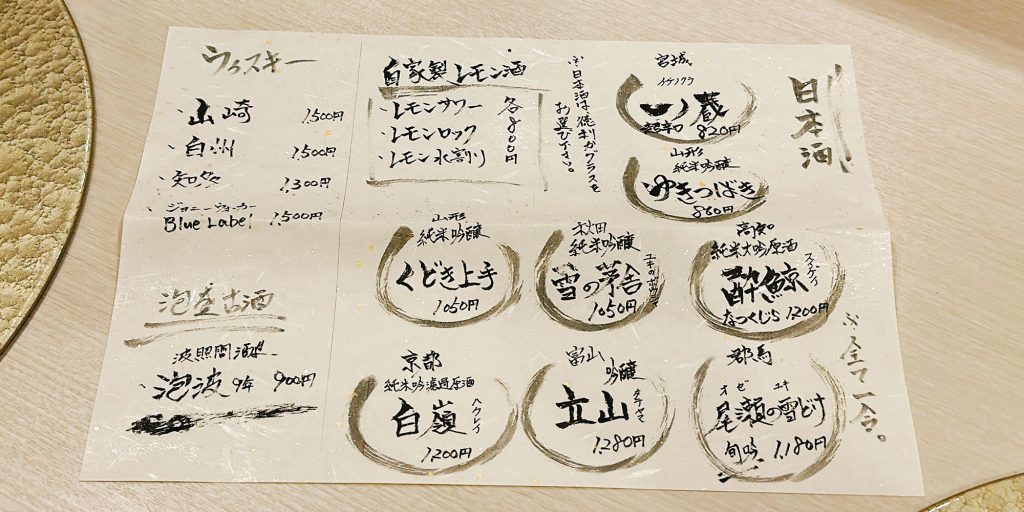 日本酒
宮城
イチノクラ
一ノ蔵
超辛口 820円
山形
純米吟醸
ゆきつばき
880円
※日本酒は徳利かグラスを
お選び下さい。
高知
純米大吟原酒
酔鯨
スイゲイ
なつくじら 1200円
秋田
純米吟醸
雪の茅舎
ユキノボウシャ
1050円
山形
純米吟醸
くどき上手
1050円
群馬
オゼ ユキ
尾瀬の雪どけ
旬吟 1,180円
富山
吟醸
立山
タテヤマ
1,280円
京都
純米吟濾過原酒
白嶺
ハクレイ
1200円
※全て一合。
自家製レモン酒
・レモンサワー
・レモンロック
・レモン水割り
各800円
ウィスキー
・山崎 1,500円
・白州 1,500円
・知多 1,300円
・ジョニーウォーカー
Blue Label 1,500円
泡盛古酒
波照間酒造
・泡波 9年 900円